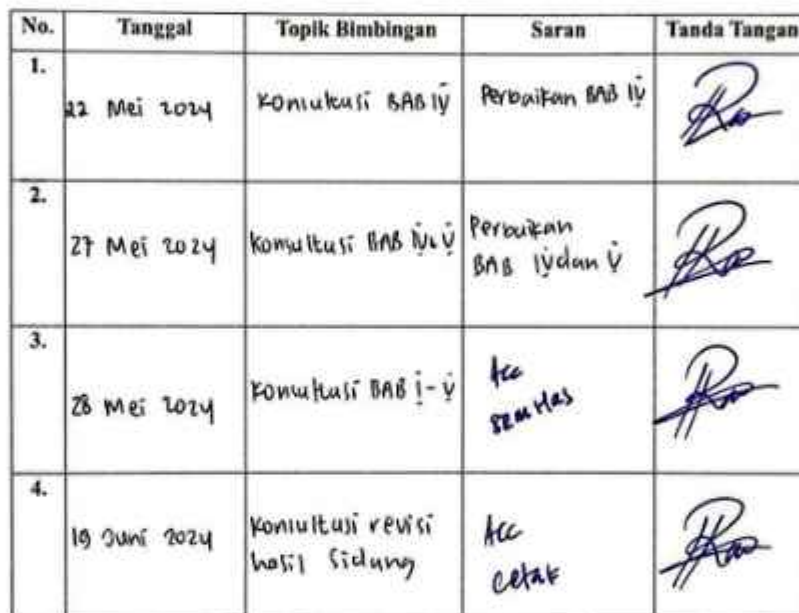 No. Tanggal Topik Bimbingan Saran Tanda Tangan
1.
22 Mei 2024 Konsultasi BAB IV Perbaikan BAB IV
2.
27 Mei 2024 Konsultasi BAB IV & V Perbaikan
BAB IV dan V
3.
28 Mei 2024 Konsultasi BAB I - V Acc
semhas
4.
19 Juni 2024 Konsultasi revisi Acc
hasil Sidang cetak